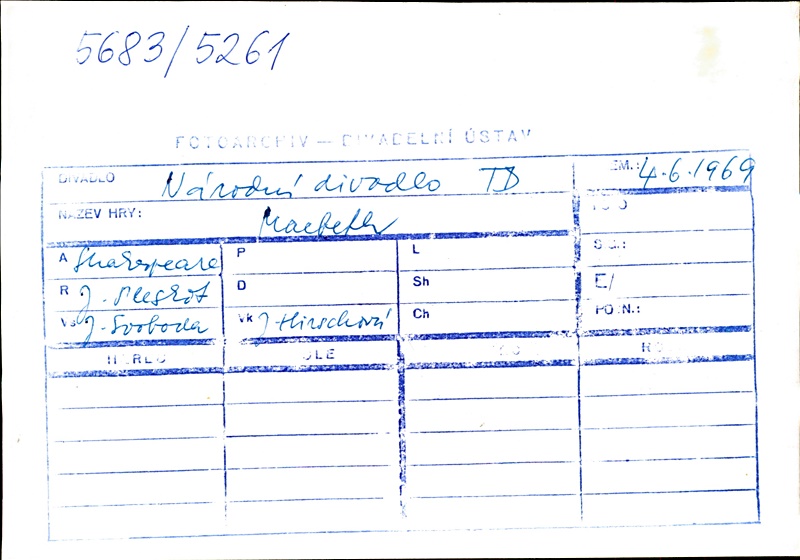 5683/5261
FOTOARCHIV — DIVADELNÍ ÚSTAV
DIVADLO Národní divadlo TD
EM.: 4.6.1969
NÁZEV HRY: Macbeth
A Shakespeare P L
R J. Pleskot D Sh E/
Vs J. Svoboda Vk J Hirschová Ch